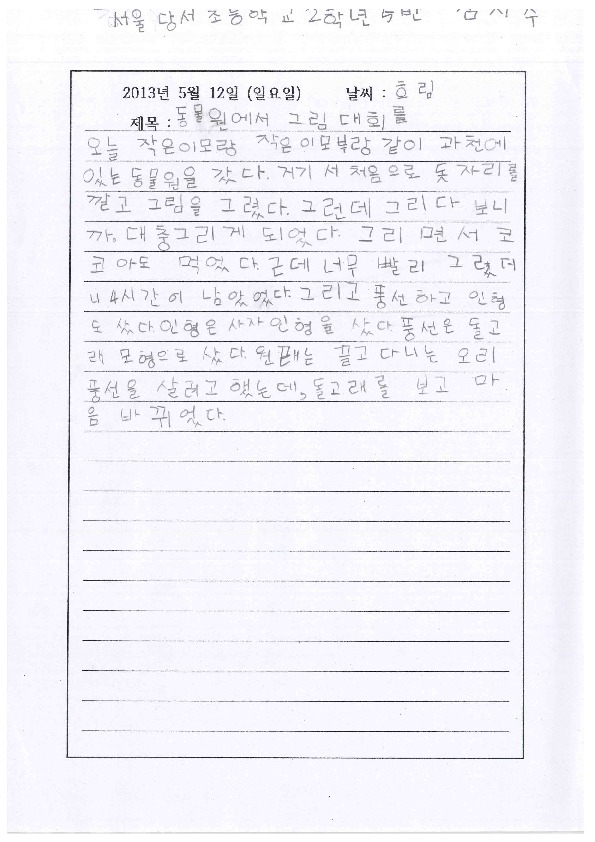 서울 당서 초등학교 2학년
2013년 5월 12일 (일요일) 날씨 : 흐림
제목 : 동물원에서 그림 대회를
오늘 작은이모랑 작은이모부랑 같이 과천에
있는 동물원을 갔다. 거기서 처음으로 돗자리를
깔고 그림을 그렸다. 그런데 그리다 보니
까. 대충그리게 되었다. 그리면서 코
코아도 먹었다. 근데 너무 빨리 그렸더
니 4시간이 남았었다. 그리고 풍선하고 인형
도 샀다 인형은 사자인형을 샀다 풍선은 돌고
래 모형으로 샀다. 원래는 끌고다니는 오리
풍선을 살려고 했는데, 돌고래를 보고 마
음 바뀌었다.